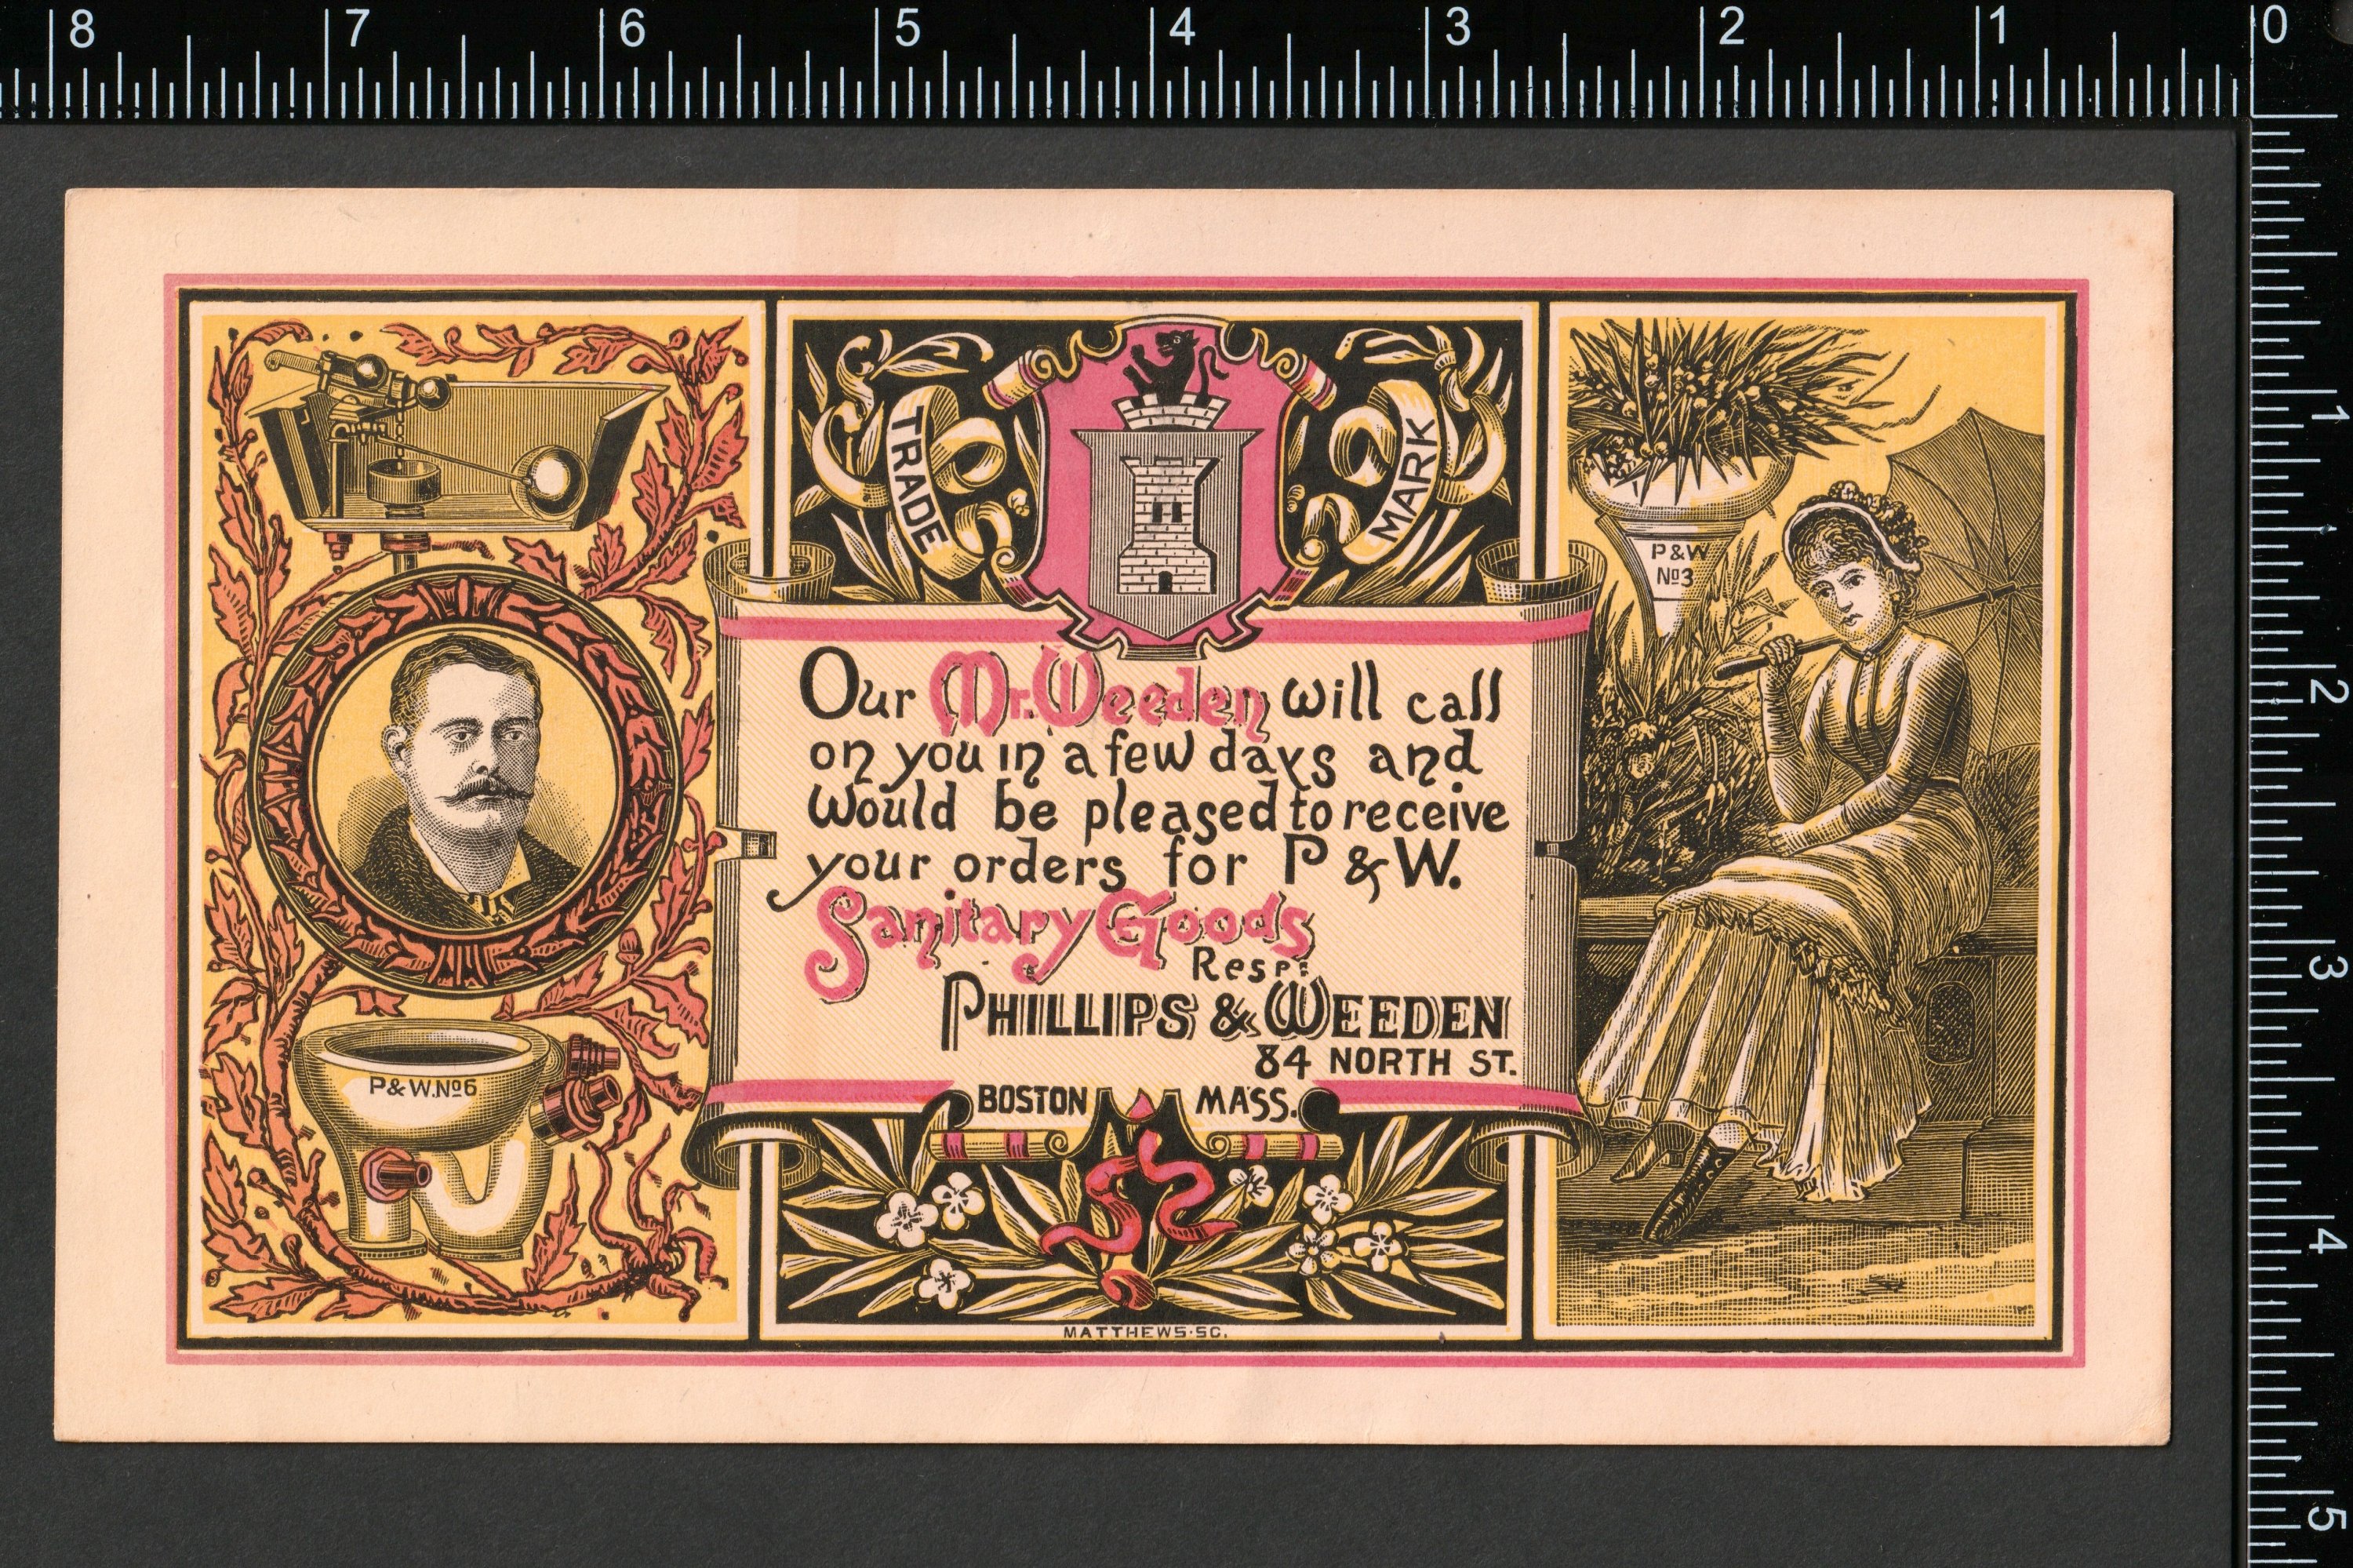 8 7 6 5 4 3 2 1 0
TRADE
MARK
P & W
No3
Our Mr. Weeden will call
on you in a few days and
would be pleased to receive
your orders for P & W.
Sanitary Goods
Resp.
PHILLIPS & WEEDEN
84 NORTH ST.
BOSTON MASS.
P & W. No6
MATTHEWS·SC.
1
2
3
4
5